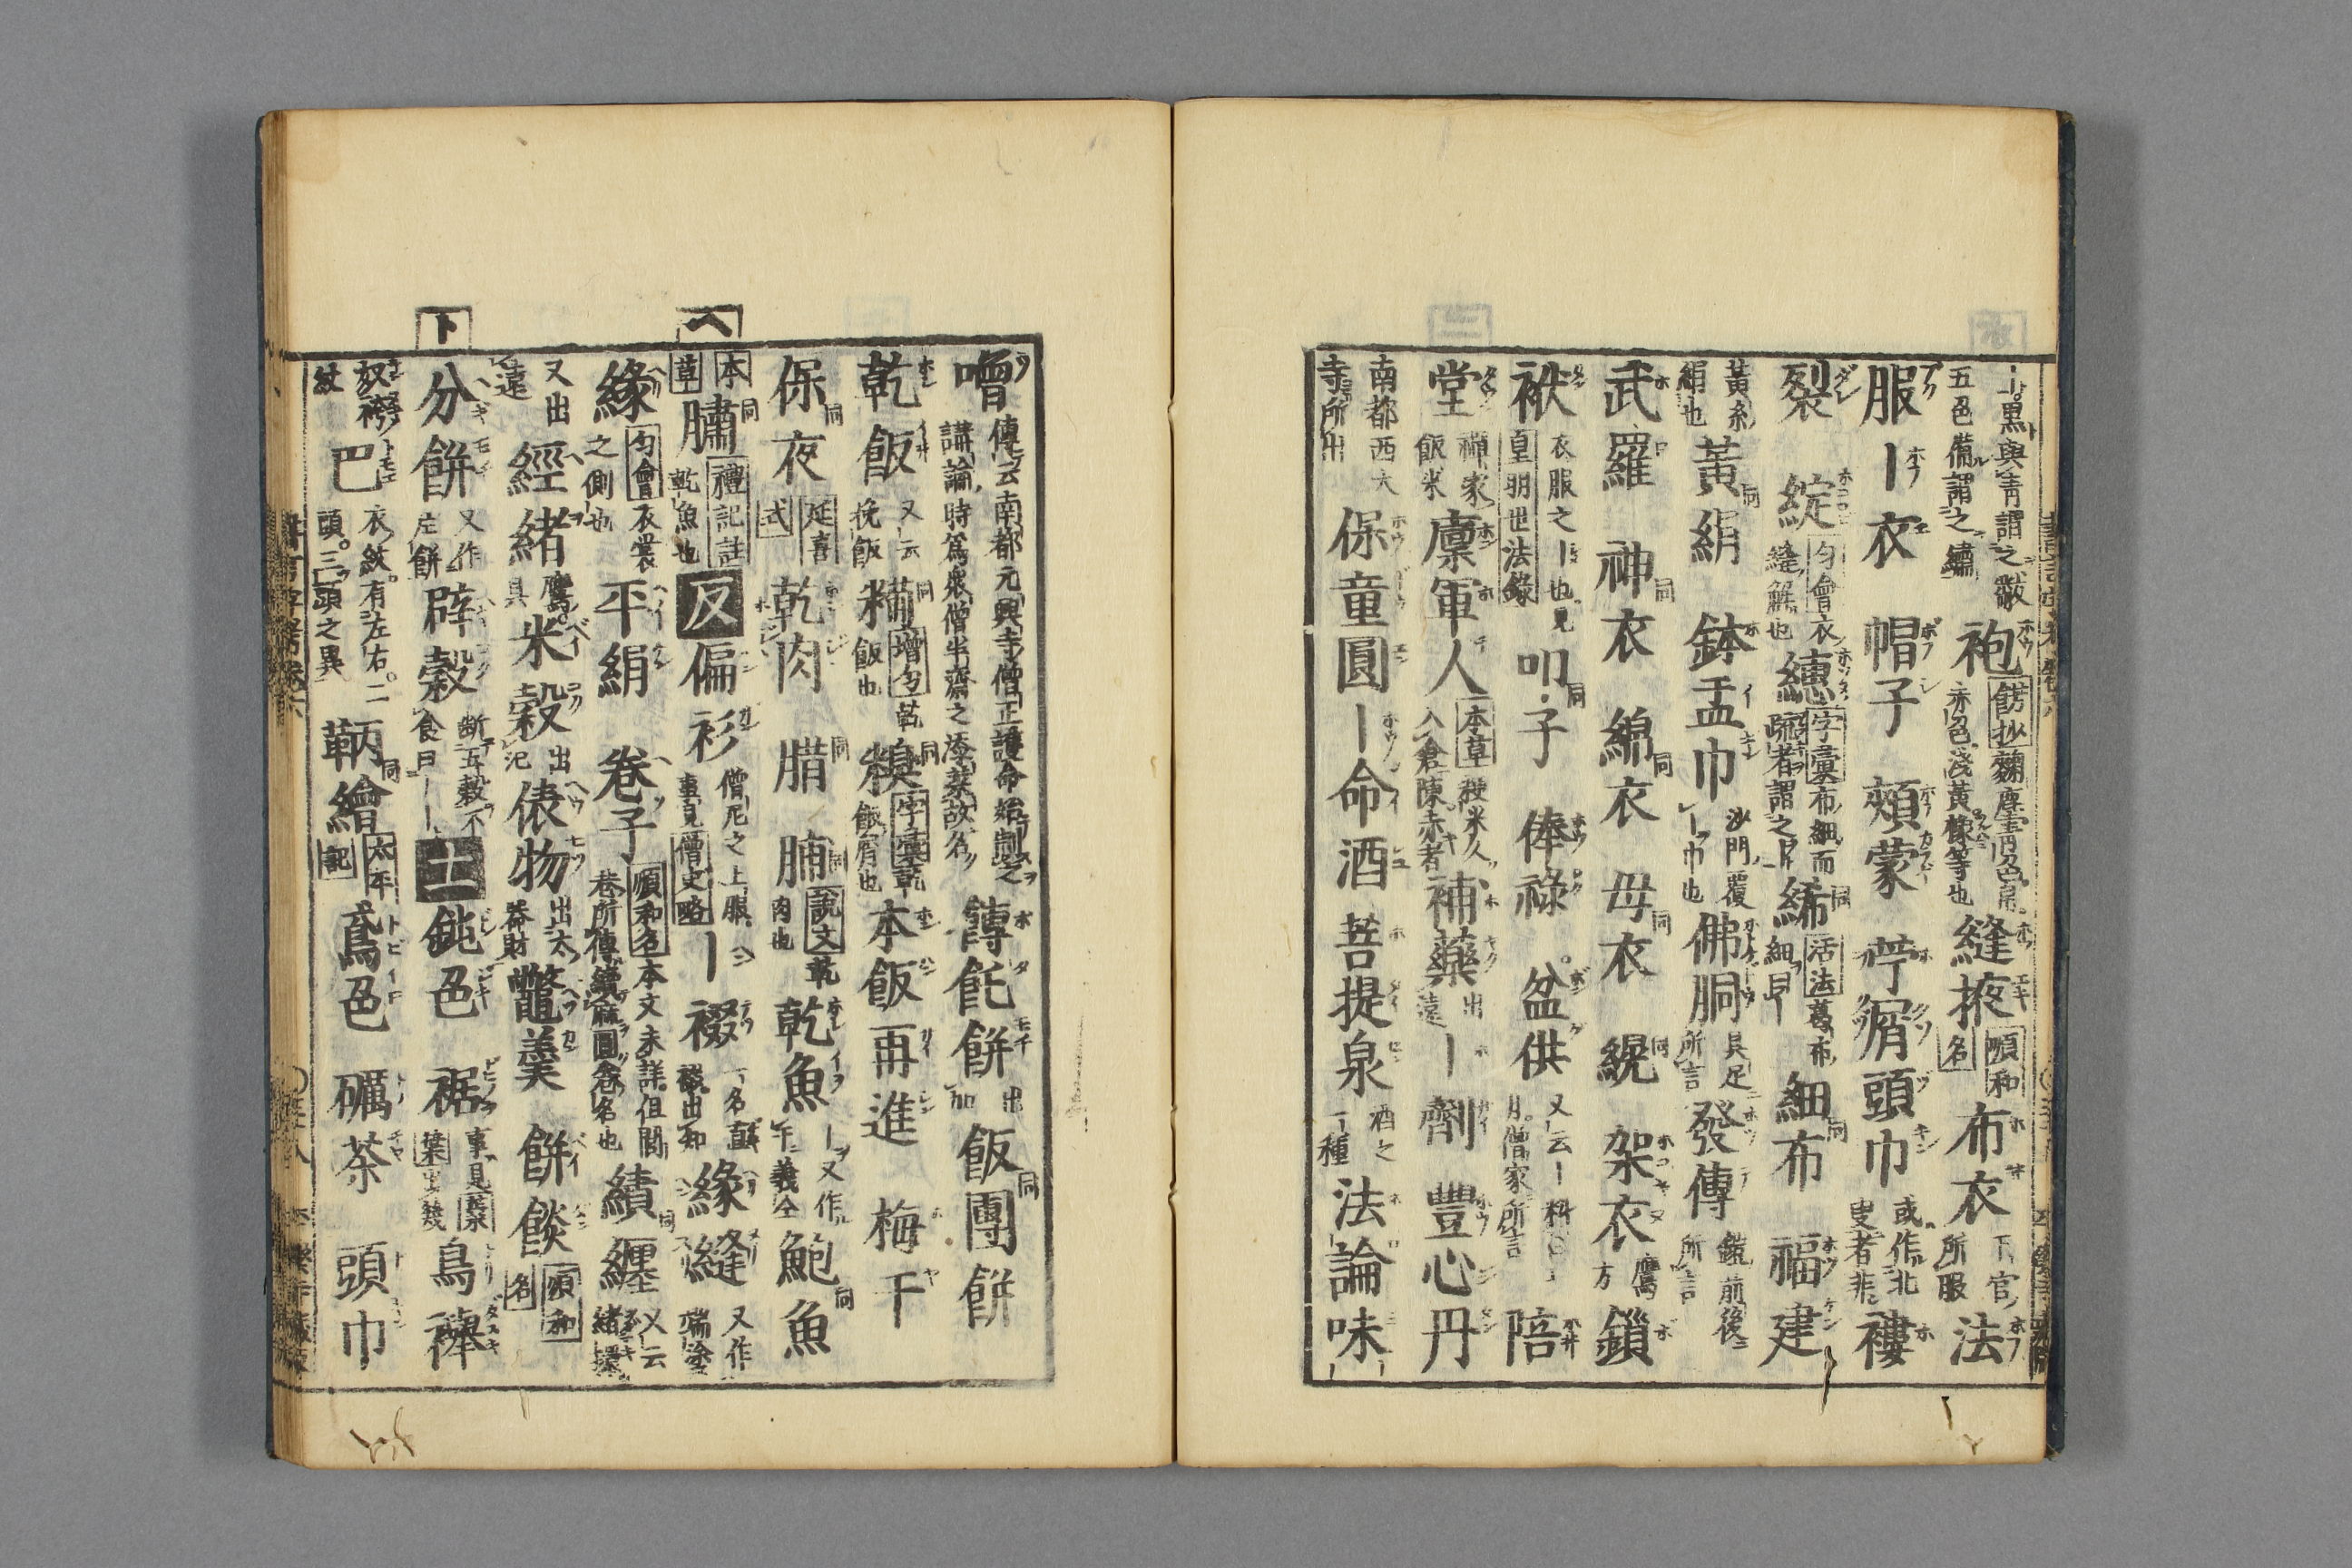 ｜黒與青謂之黻
五色備謂之繡
袍 餝抄 麹塵青色帛
赤色淺黄橡等也
縫掖 順和
名
布衣 下官
所服
法
服｜衣 帽子 頰蒙 苧屑頭巾 或作北
叟者非
褸
裂 綻 匀會 衣
縫解也
繐 字彙 布細而
疏者謂之｜
絺 活法 葛布
細曰｜
細布 福建
黄糸
絹也
黄絹 鉢盂巾 沙門覆
｜巾也
佛胴 具足
所言
發傳 鎧前後
所言
武羅 神衣 綿衣 母衣 縨 架衣 鷹
方
鎖
袱 衣服之｜也見
皇明世法錄
叩子 俸祿 盆供 又云｜料
月僧家所言
陪
堂 禪家
飯米
廩軍人 本草 粳米久
入倉陳赤者
補藥 出
遠
｜劑 豐心丹
南都西大
寺所出
保童圓 ｜命酒 菩提泉 酒之
一種
法論味
噌 傳云南都元興寺僧正護命始制之
講論時爲衆僧半齋之添菜故名
餺飥餅 出
加
飯團餅
乾飯 又云
挽飯
糒 增匀 乾
飯也
糗 字彙 乾
飯屑也
本飯再進 梅干
保夜 延喜
式
乾肉 腊 脯 說文 乾
肉也
乾魚 ｜又作
下義仝
鮑魚
本
草
鱐 禮記註
乾魚也
反 偏衫 僧尼之上服
事見僧史略
｜裰 一名直
裰出知
緣縫 又作
端塗
ヘ
緣 匀會 衣裳
之側也
平絹 卷子 順和名 本文未詳但閭
巷所傳續麻圓卷名也
績纏 又云
緒環
又出
遠
經緖 鷹
具
米穀 出
氾
俵物 出太
莽財
鼈羹 餅餤 順和
名
ト
分餅 又作
庄餅
辟穀 断五穀不
食曰｜｜
土 鈍色 裾 事見衆
葉出幾
鳥襷
奴袴
紋
巴 衣紋有左右二
頭三頭之異
鞆繪 太平
記
鳶色 礪茶 頭巾